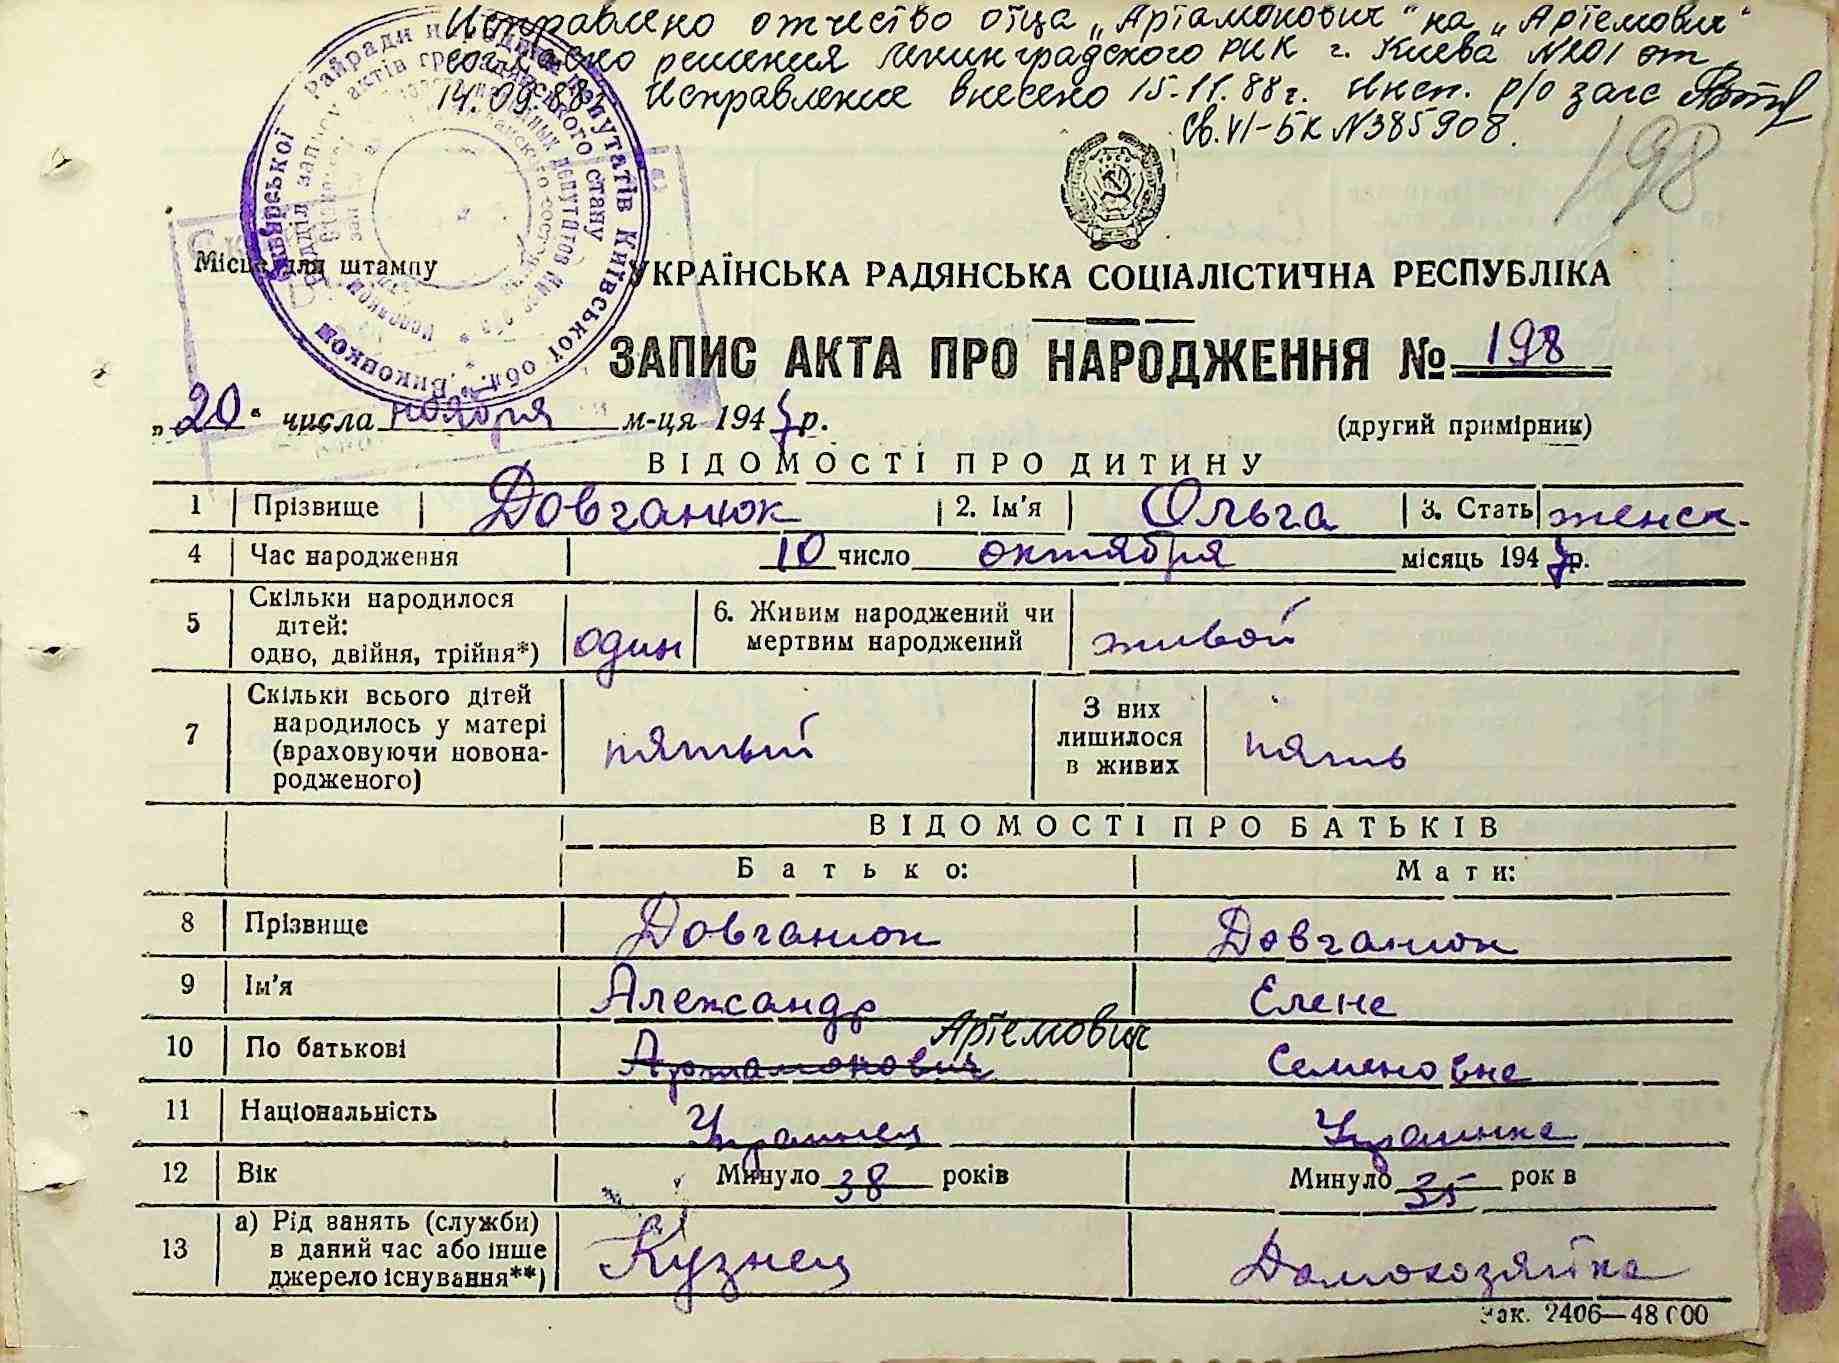 Исправлено отчество отца „Артамонович" на „Артемович"
согласно решения Ленинградского РИК г. Киева №201 от
14.09.88г. Исправление внесено 15.11.88г. Инсп. р/о загс
Св. VI-БК №385908.
198
Місце для штампу
УКРАЇНСЬКА РАДЯНСЬКА СОЦІАЛІСТИЧНА РЕСПУБЛІКА
ЗАПИС АКТА ПРО НАРОДЖЕННЯ № 198
„20" числа ноября м-ця 1947 р.
(другий примірник)
ВІДОМОСТІ ПРО ДИТИНУ
1 Прізвище Довганюк 2. Ім'я Ольга 3. Стать женск.
4 Час народження 10 число октября місяць 1947 р.
5 Скільки народилося дітей: одно, двійня, трійня*) один 6. Живим народжений чи мертвим народжений живой
7 Скільки всього дітей народилось у матері (враховуючи новонародженого) пятый З них лишилося в живих пять
ВІДОМОСТІ ПРО БАТЬКІВ
Батько: Мати:
8 Прізвище Довганюк Довганюк
9 Ім'я Александр Елена
Артемович
10 По батькові Артамонович Семеновна
11 Національність Украинец Украинка
12 Вік Минуло 38 років Минуло 35 рок в
13 а) Рід занять (служби) в даний час або інше джерело існування**) Кузнец Домохозяйка
Зак. 2406—48000